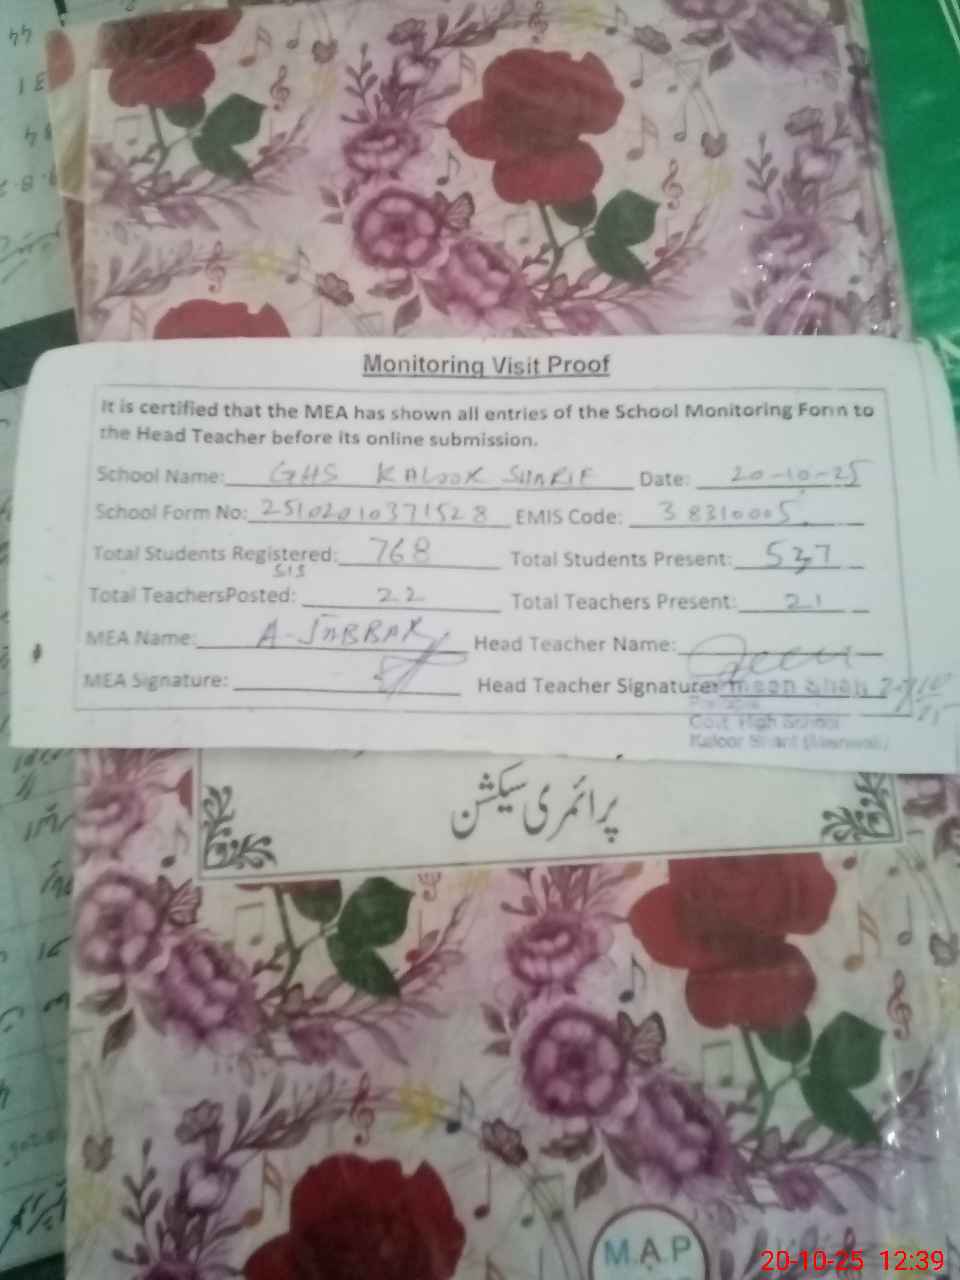 Monitoring Visit Proof
It is certified that the MEA has shown all entries of the School Monitoring Form to
the Head Teacher before its online submission.
School Name: GHS KALOOR SHARIF Date: 20-10-25
School Form No: 25102010371528 EMIS Code: 38310005
Total Students Registered: 768 Total Students Present: 537
SIS
Total TeachersPosted: 22 Total Teachers Present: 21
MEA Name: A-JABBAR Head Teacher Name:
MEA Signature: Head Teacher Signature:
Govt. High School
Kaloor Sharif (Mianwali)
پرائمری سیکشن
M.A.P
20-10-25 12:39